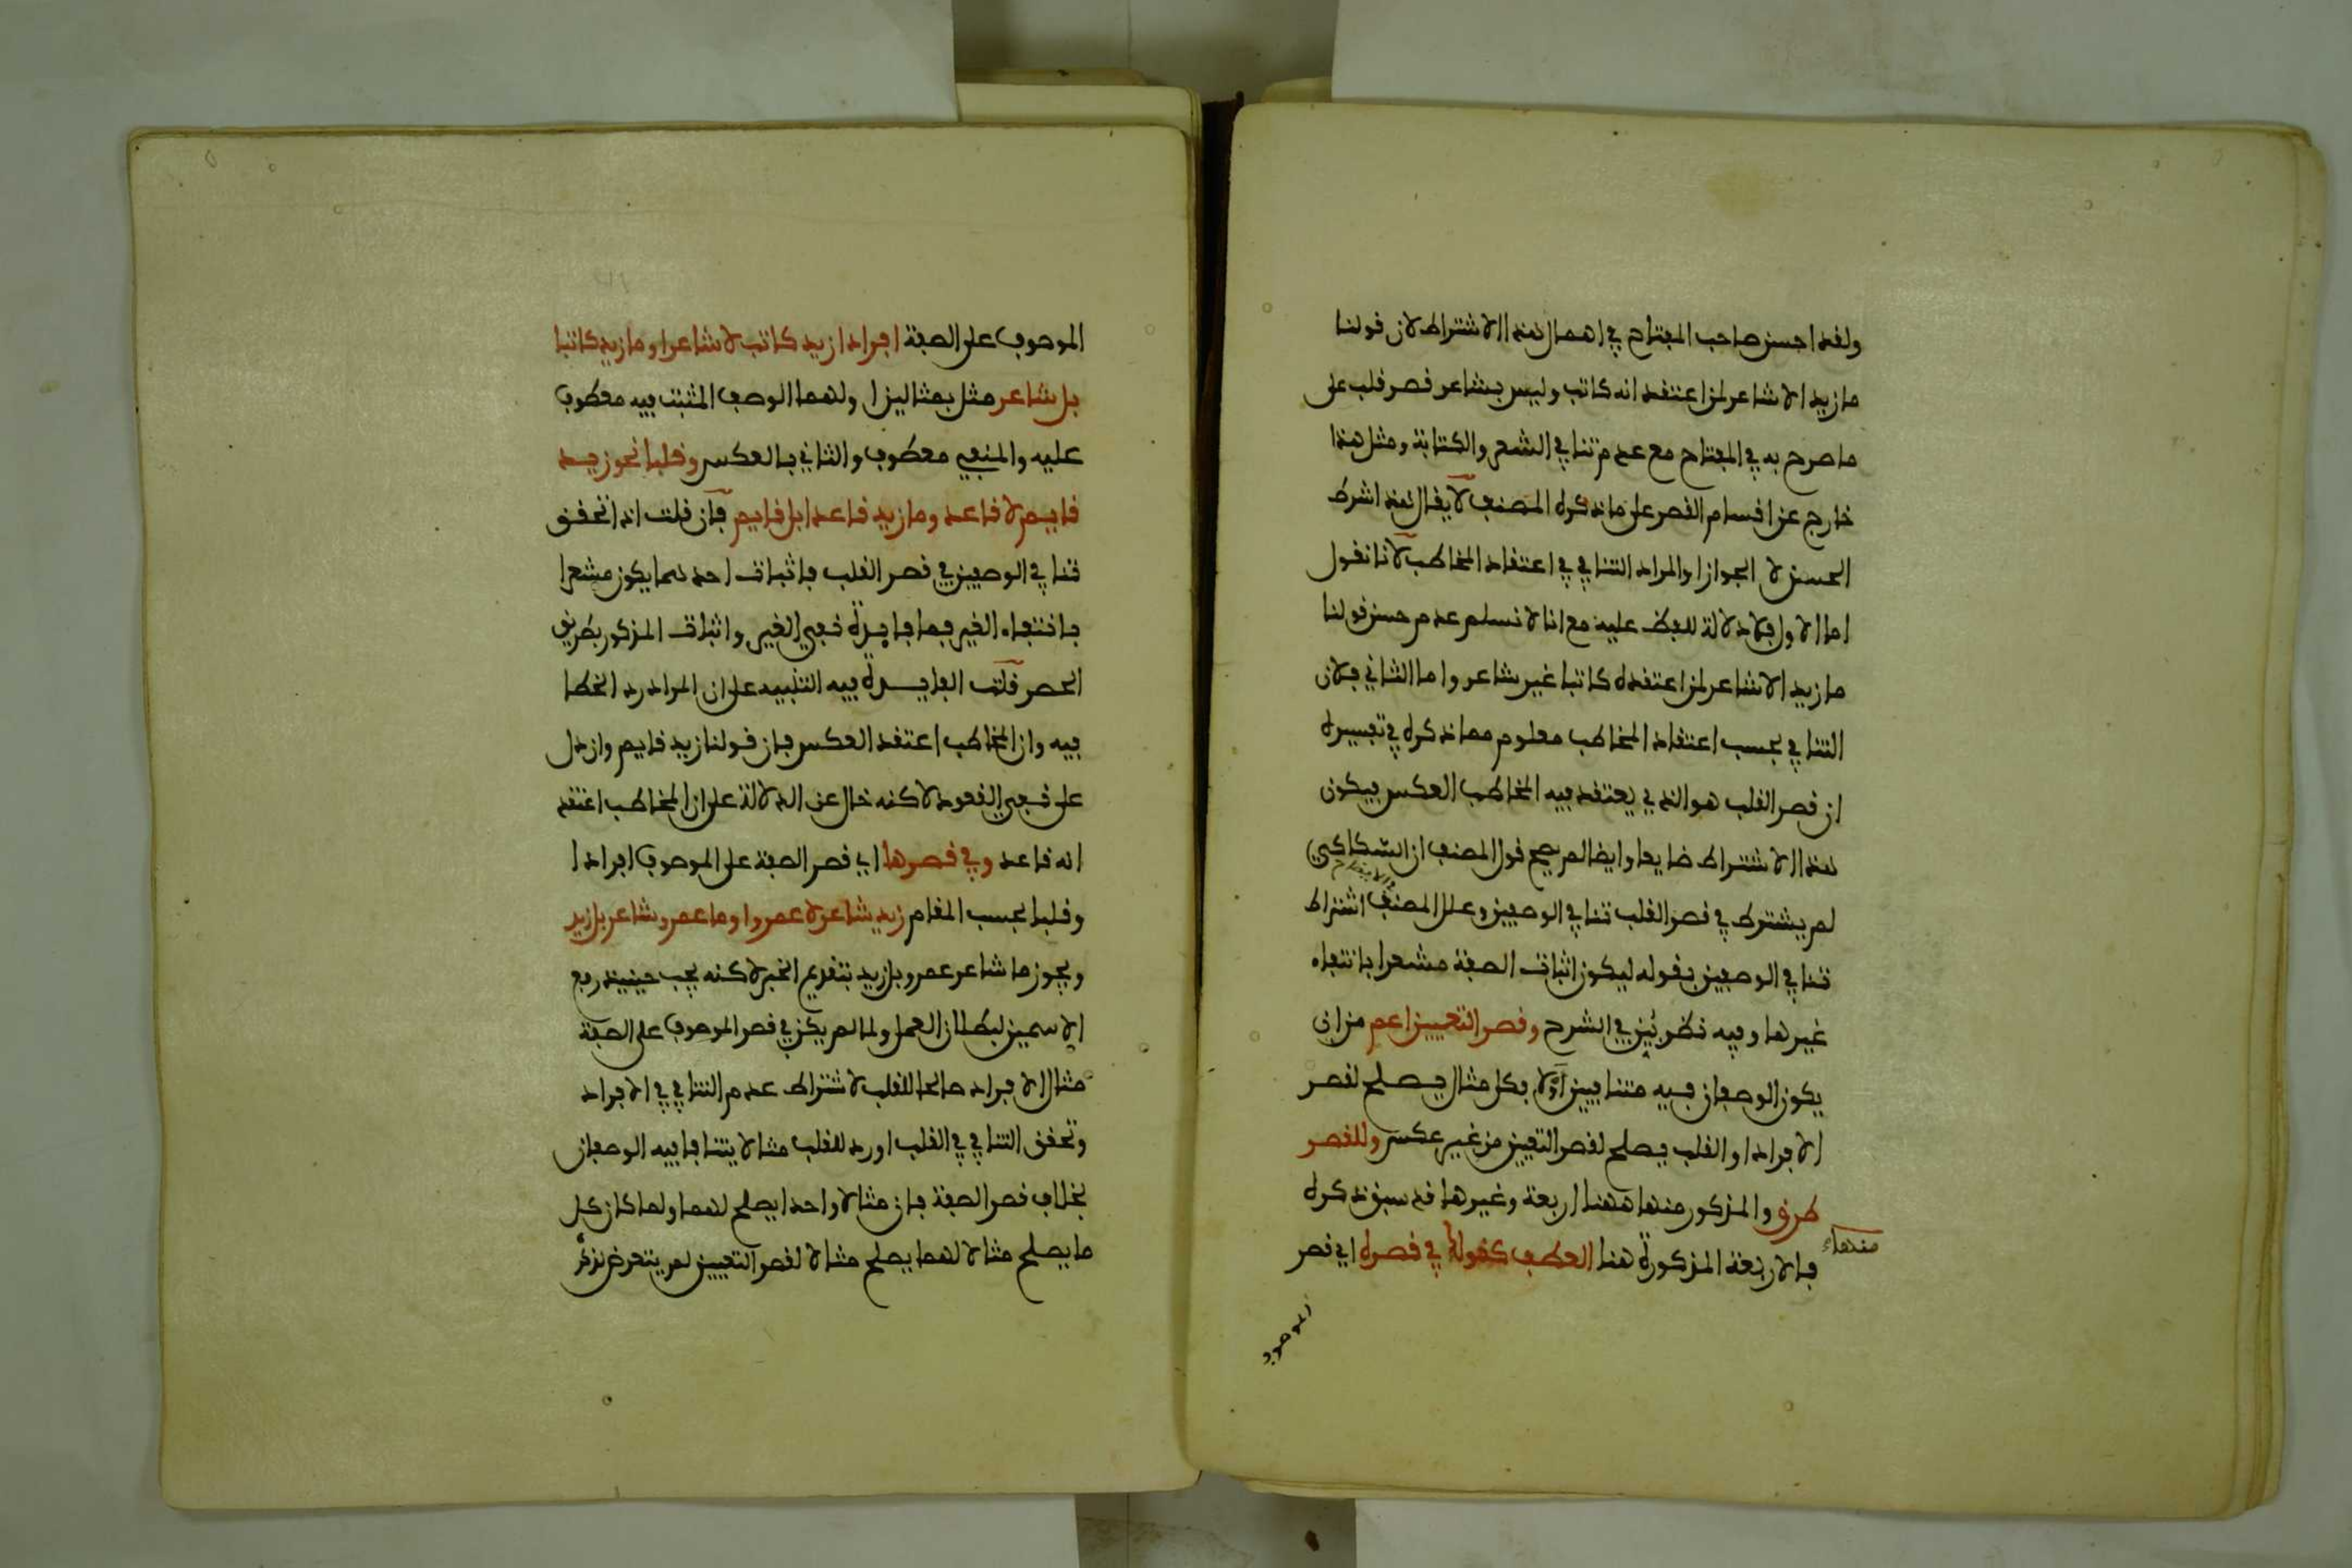 ولقد احسن صاحب المفتاح في اهمال هذا الاشتراط لان قولنا
ما زيد الا شاعر لمن اعتقد انه كاتب وليس بشاعر قصر قلب على
ما صرح به في المفتاح مع عدم تنافي الشعر والكتابة ومثل هذا
خارج عن اقسام القصر على ما ذكره المصنف لا يقال هذا شرط
الحسن لا الجواز او المراد التنافي في اعتقاد المخاطب لانا نقول
اما الاول فلا دلالة للفظ عليه مع انا لا نسلم عدم حسن قولنا
ما زيد الا شاعر لمن اعتقده كاتبا غير شاعر واما الثاني فلان
التنافي بحسب اعتقاد المخاطب معلوم مما ذكره في تفسيره
ان قصر القلب هو الذي يعتقد فيه المخاطب العكس فيكون
هذا الاشتراط ضايعا وايضا لم يصح قول المصنف ان السكاكي
لم يشترط في قصر القلب تنافي الوصفين وعلل المصنف اشتراط
تنافي الوصفين بقوله ليكون اثبات الصفة مشعرا بانتفاء
غيرها وفيه نظر بين في الشرح وقصر التعيين اعم من ان
يكون الوصفان فيه متنافيين او لا فكل مثال يصلح لقصر
الافراد او القلب يصلح لقصر التعيين من غير عكس وللقصر
طرق والمذكور منها ههنا اربعة وغيرها قد سبق ذكره
فالاربعة المذكورة هنا العطف كقولك في قصره اي قصر
منها
الموصوف على الصفة افرادا زيد كاتب لا شاعر او ما زيد كاتبا
بل شاعر مثل بمثالين اولهما الوصف المثبت فيه معطوف
عليه والمنفي معطوف والثاني بالعكس وقلبا نحو زيد
قايم لا قاعد وما زيد قاعدا بل قايم فان قلت اذا تحقق
تنافي الوصفين في قصر القلب فاثبات احدهما يكون مشعرا
بانتفاء الغير فما فايدة نفي الغير واثبات المذكور بطريق
الحصر قلت الفايدة فيه التنبيه على ان المراد رد الخطا
فيه وان المخاطب اعتقد العكس فان قولنا زيد قايم وان دل
على نفي القعود لاكنه خال عن الدلالة على ان المخاطب اعتقد
انه قاعد وفي قصرها اي قصر الصفة على الموصوف افرادا
وقلبا بحسب المقام زيد شاعر لا عمرو او ما عمرو شاعر بل زيد
ويجوز ما شاعر عمرو بل زيد بتقديم الخبر لاكنه يجب حينيذ رفع
الاسمين لبطلان العمل ولما لم يكن في قصر الموصوف على الصفة
مثال الافراد صالحا للقلب لاشتراط عدم التنافي في الافراد
وتحقق التنافي في القلب اورد للقلب مثالا يتنافا فيه الوصفان
بخلاف قصر الصفة فان مثالا واحدا يصلح لهما ولما كان كل
ما يصلح مثالا لهما يصلح مثالا لقصر التعيين لم يتعرض لذكره